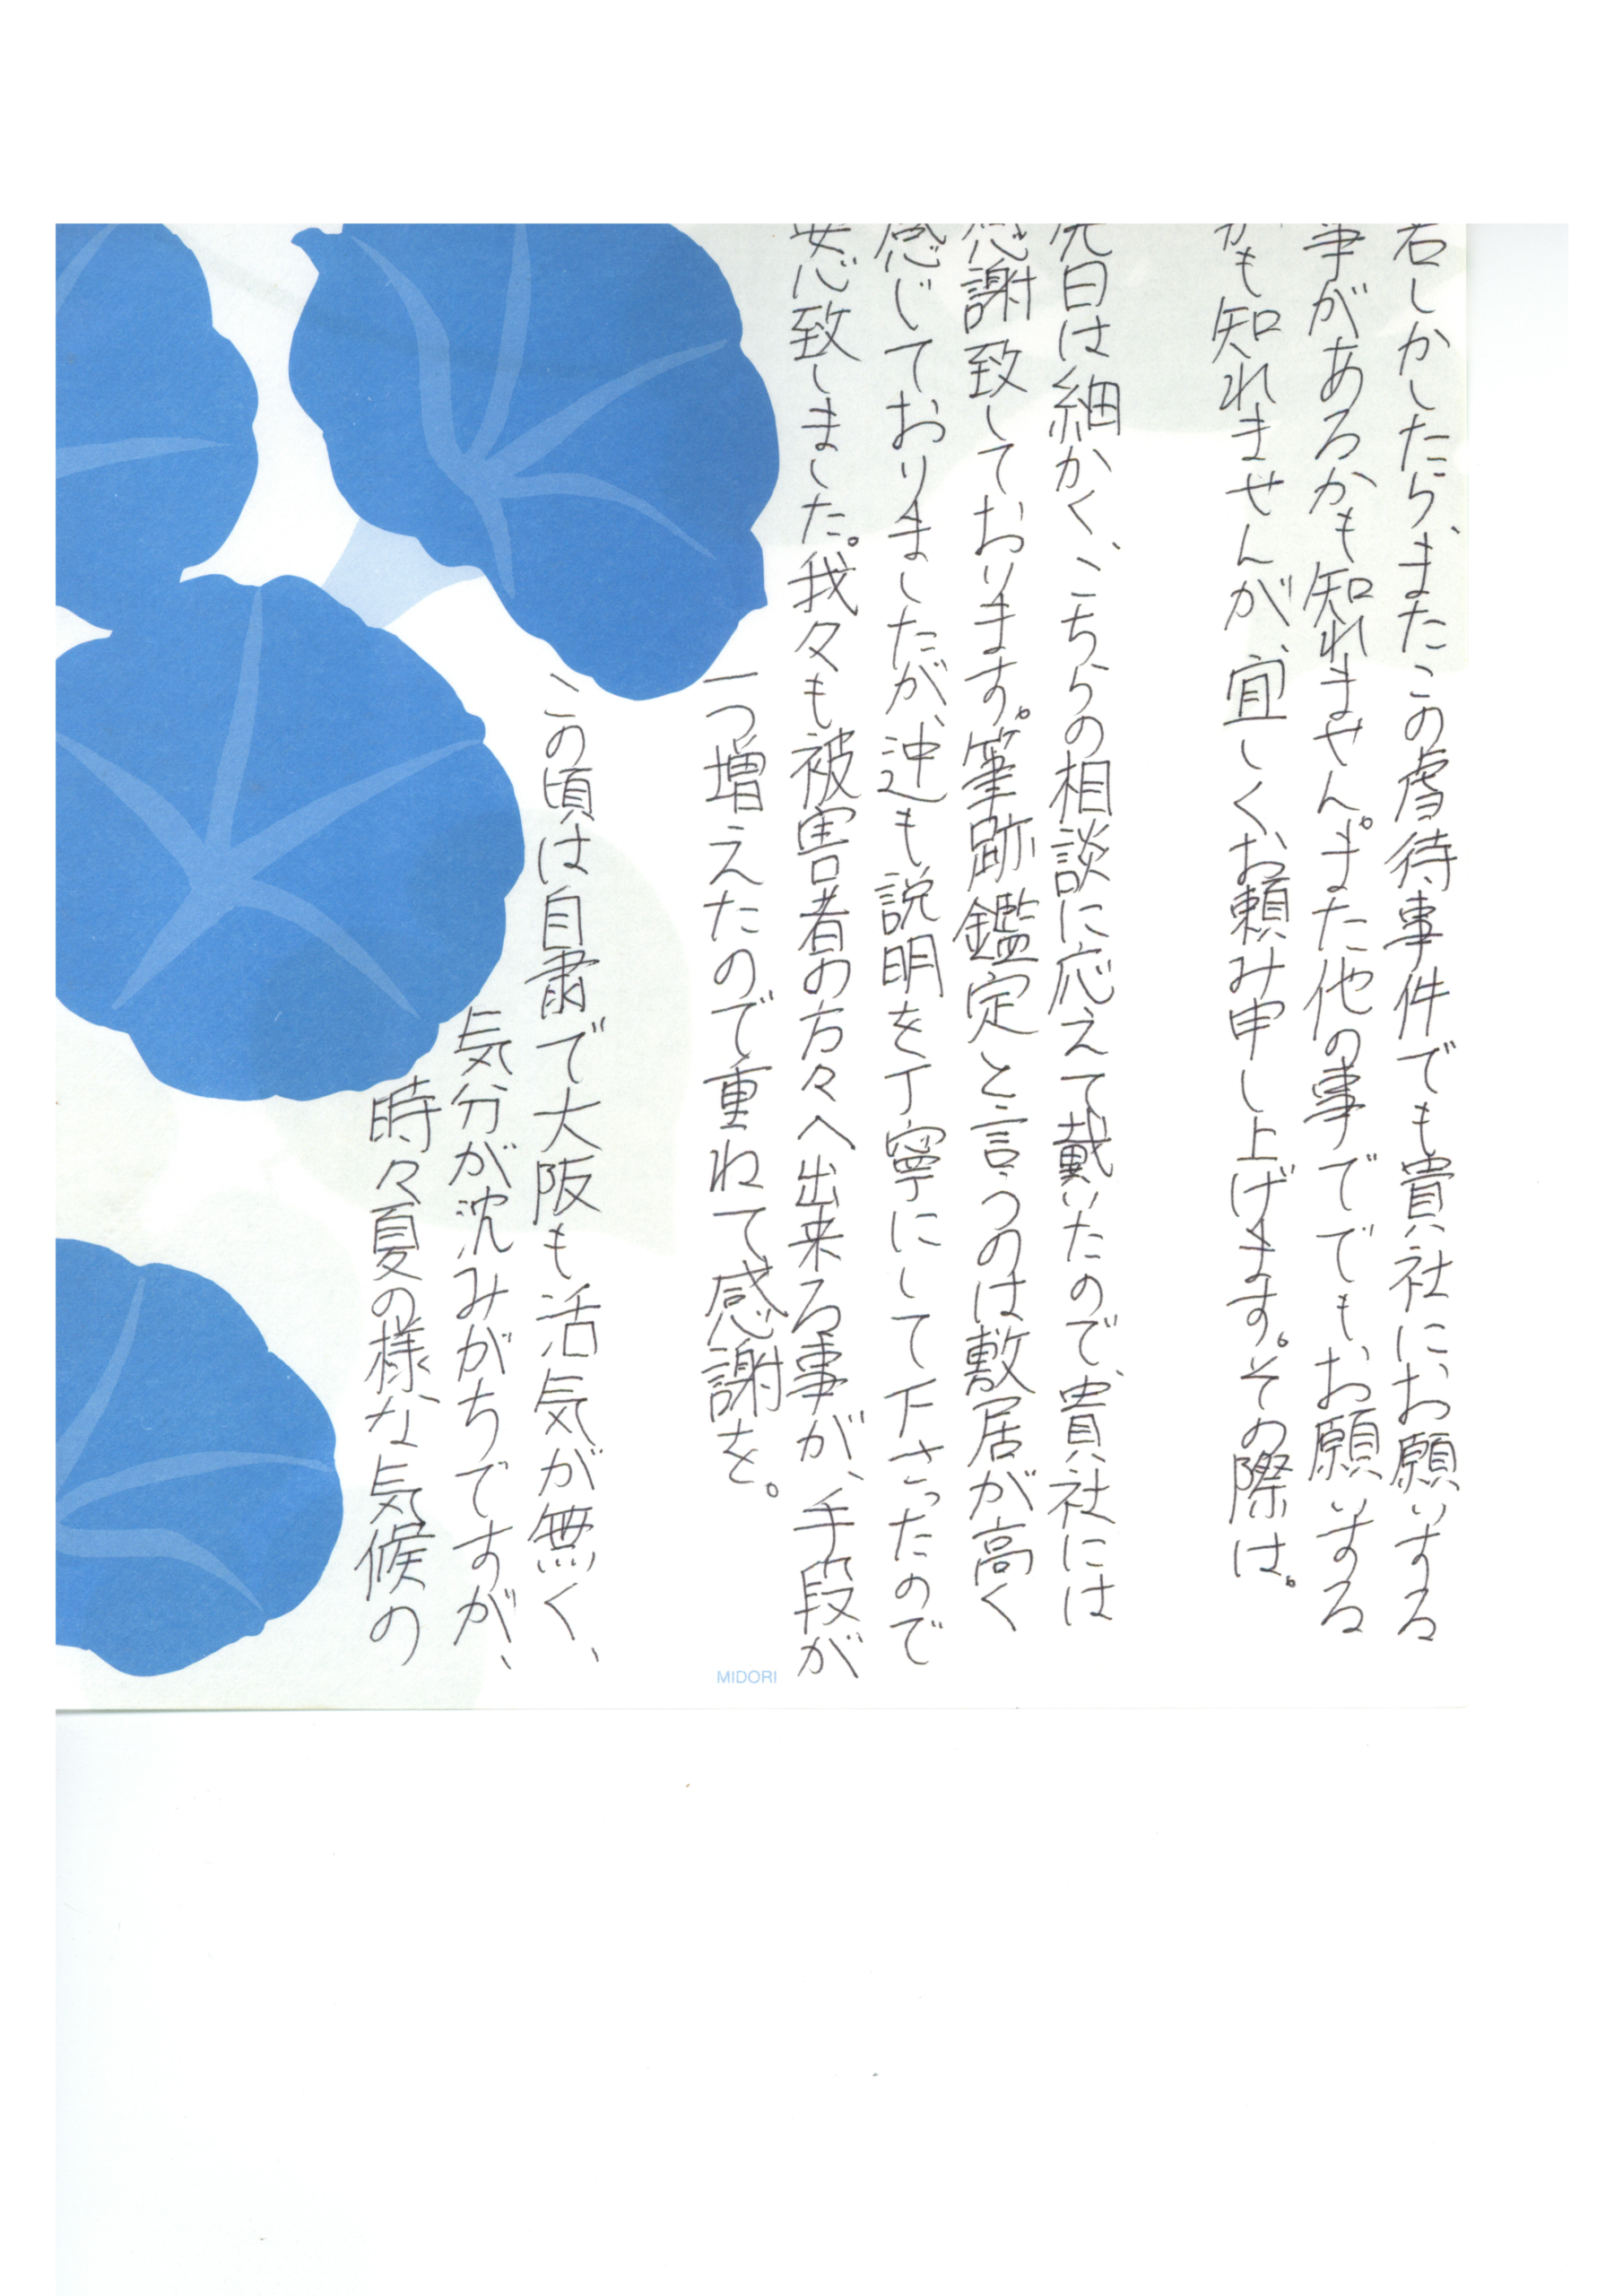 若しかしたら、またこの虐待事件でも貴社にお願いする
事があるかも知れません。また他の事ででもお願いする
かも知れませんが、宜しくお頼み申し上げます。その際は。
先日は細かく、こちらの相談に応えて戴いたので、貴社には
感謝致しております。筆跡鑑定と言うのは敷居が高く
感じておりましたが、迚も説明を丁寧にして下さったので
安心致しました。我々も被害者の方々へ出来る事が、手段が
一つ増えたので重ねて感謝を。
この頃は自粛で大阪も活気が無く、
気分が沈みがちですが、
時々夏の様な気候の
MIDORI